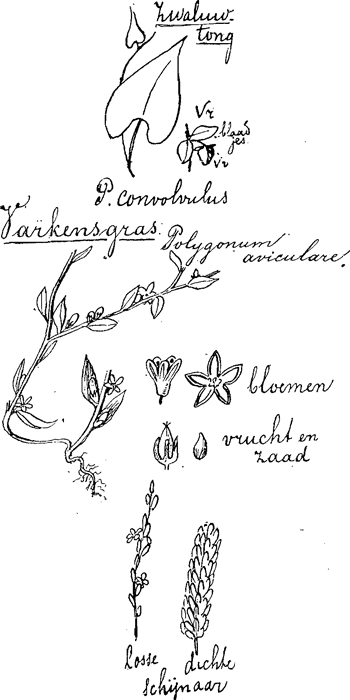 Zwaluw-
tong
Vr
blaad
jes
Vr
P. convolvulus
Varkensgras. Polygonum
aviculare.
bloemen
vrucht en
zaad
losse dichte
schijnaar